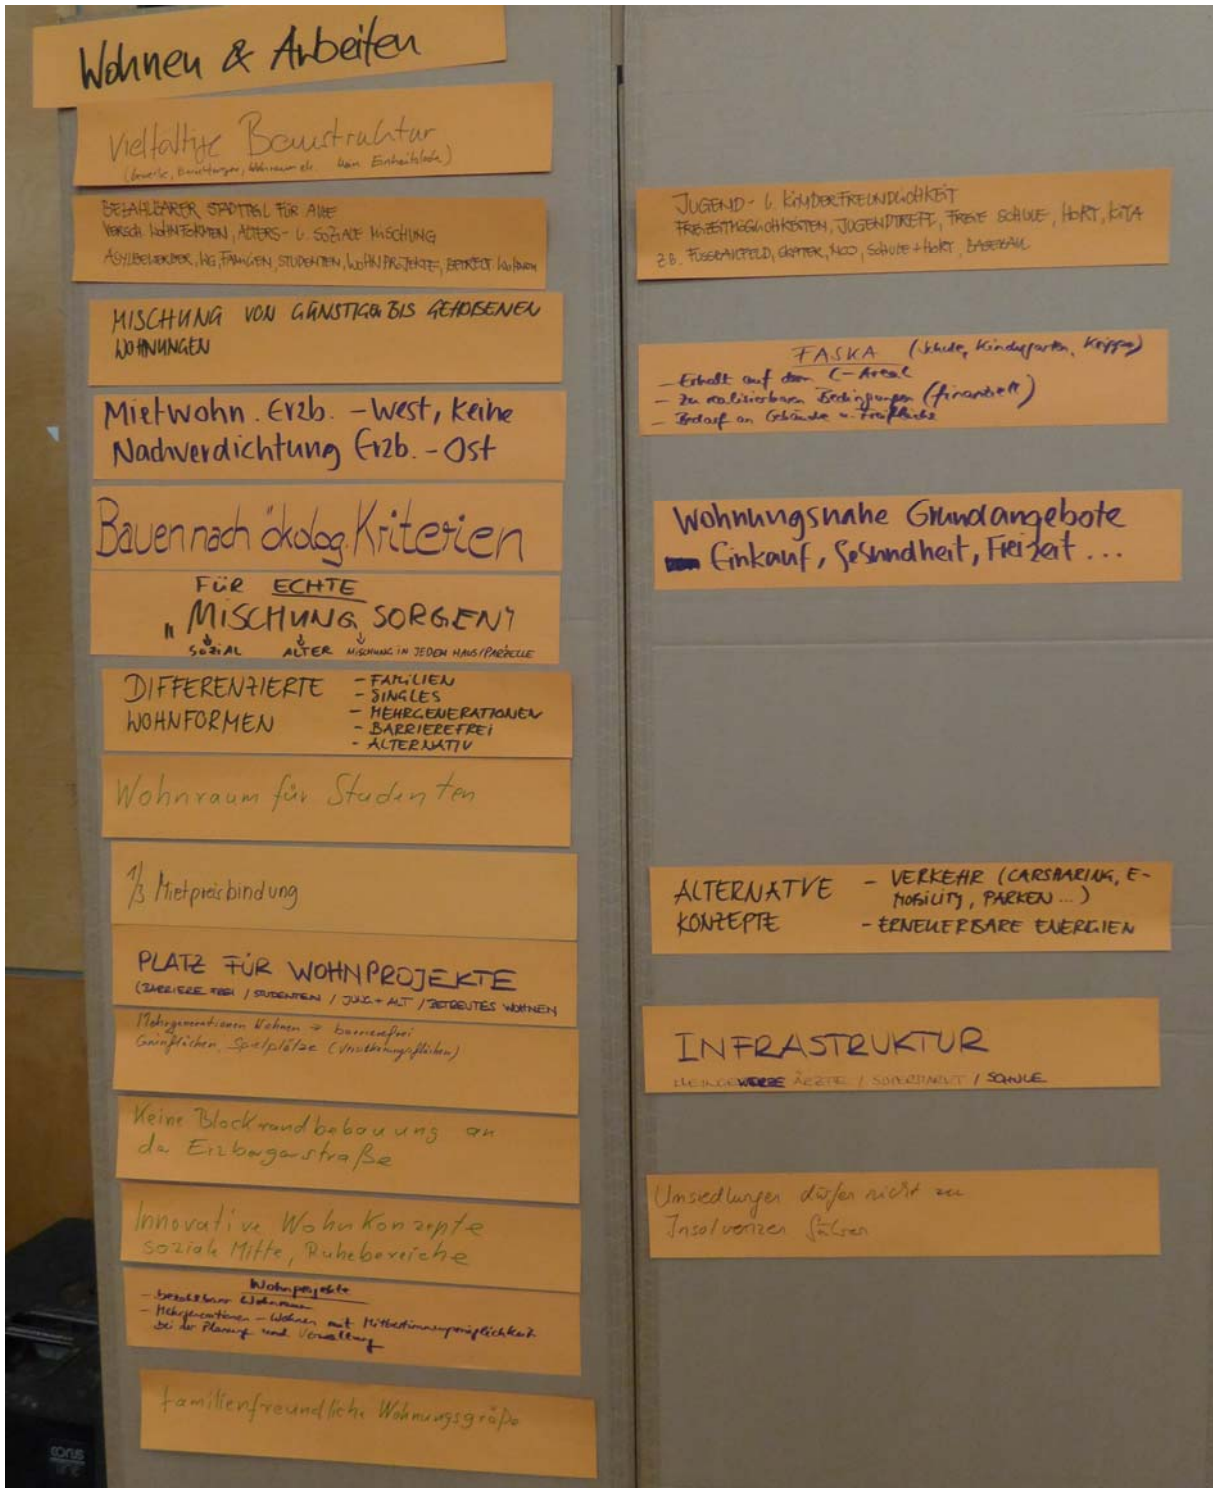 Wohnen & Arbeiten
Vielfältige Baustruktur
BEZAHLBARER STADTTEIL FÜR ALLE
VERSCH. WOHNFORMEN, ALTERS- U. SOZIALE MISCHUNG
ASYLBEWERBER, WG, FAMILIEN, STUDENTEN, WOHNPROJEKTE, BETREUT. WOHNEN
MISCHUNG VON GÜNSTIGEN BIS GEHOBENEN
WOHNUNGEN
Mietwohn. Erzb. - West, Keine
Nachverdichtung Erzb. - Ost
Bauen nach ökolog. Kriterien
FÜR ECHTE
"MISCHUNG SORGEN"
SOZIAL ALTER MISCHUNG IN JEDEM HAUS/PARZELLE
DIFFERENZIERTE
WOHNFORMEN
- FAMILIEN
- SINGLES
- MEHRGENERATIONEN
- BARRIEREFREI
- ALTERNATIV
Wohnraum für Studenten
1/3 Mietpreisbindung
PLATZ FÜR WOHNPROJEKTE
(BARRIERE FREI / STUDENTEN / JUNG + ALT / BETREUTES WOHNEN
Mehrgenerationen Wohnen → barrierefrei
Grünflächen, Spielplätze
Keine Blockrandbebauung an
da Erzbergerstraße
Innovative Wohnkonzepte
soziale Mitte, Ruhebereiche
Wohnprojekte
- bezahlbarer Wohnraum
- Mehrgenerationen - Wohnen mit Mitbestimmungsmöglichkeit
bei der Planung und Verwaltung
Familienfreundliche Wohnungsgröße
JUGEND- U. KINDERFREUNDLICHKEIT
FREIZEITMÖGLICHKEITEN, JUGENDTREFF, FREIE SCHULE, HORT, KITA
ZB. FUSSBALLFELD, SKATER, NCO, SCHULE + HORT, BASEBALL
FASKA (Schule, Kindergarten, Krippe)
- Erhalt auf dem C-Areal
- Zu realisierbaren Bedingungen (finanziell)
- Bedarf an Gebäude u. Freifläche
Wohnungsnahe Grundangebote
Einkauf, Gesundheit, Freizeit ...
ALTERNATVE
KONZEPTE
- VERKEHR (CARSHARING, E-
MOBILITY, PARKEN ...)
- ERNEUERBARE ENERGIEN
INFRASTRUKTUR
ÄRZTE / SUPERMARKT / SCHULE
Umsiedlungen dürfen nicht zu
Insolvenzen führen